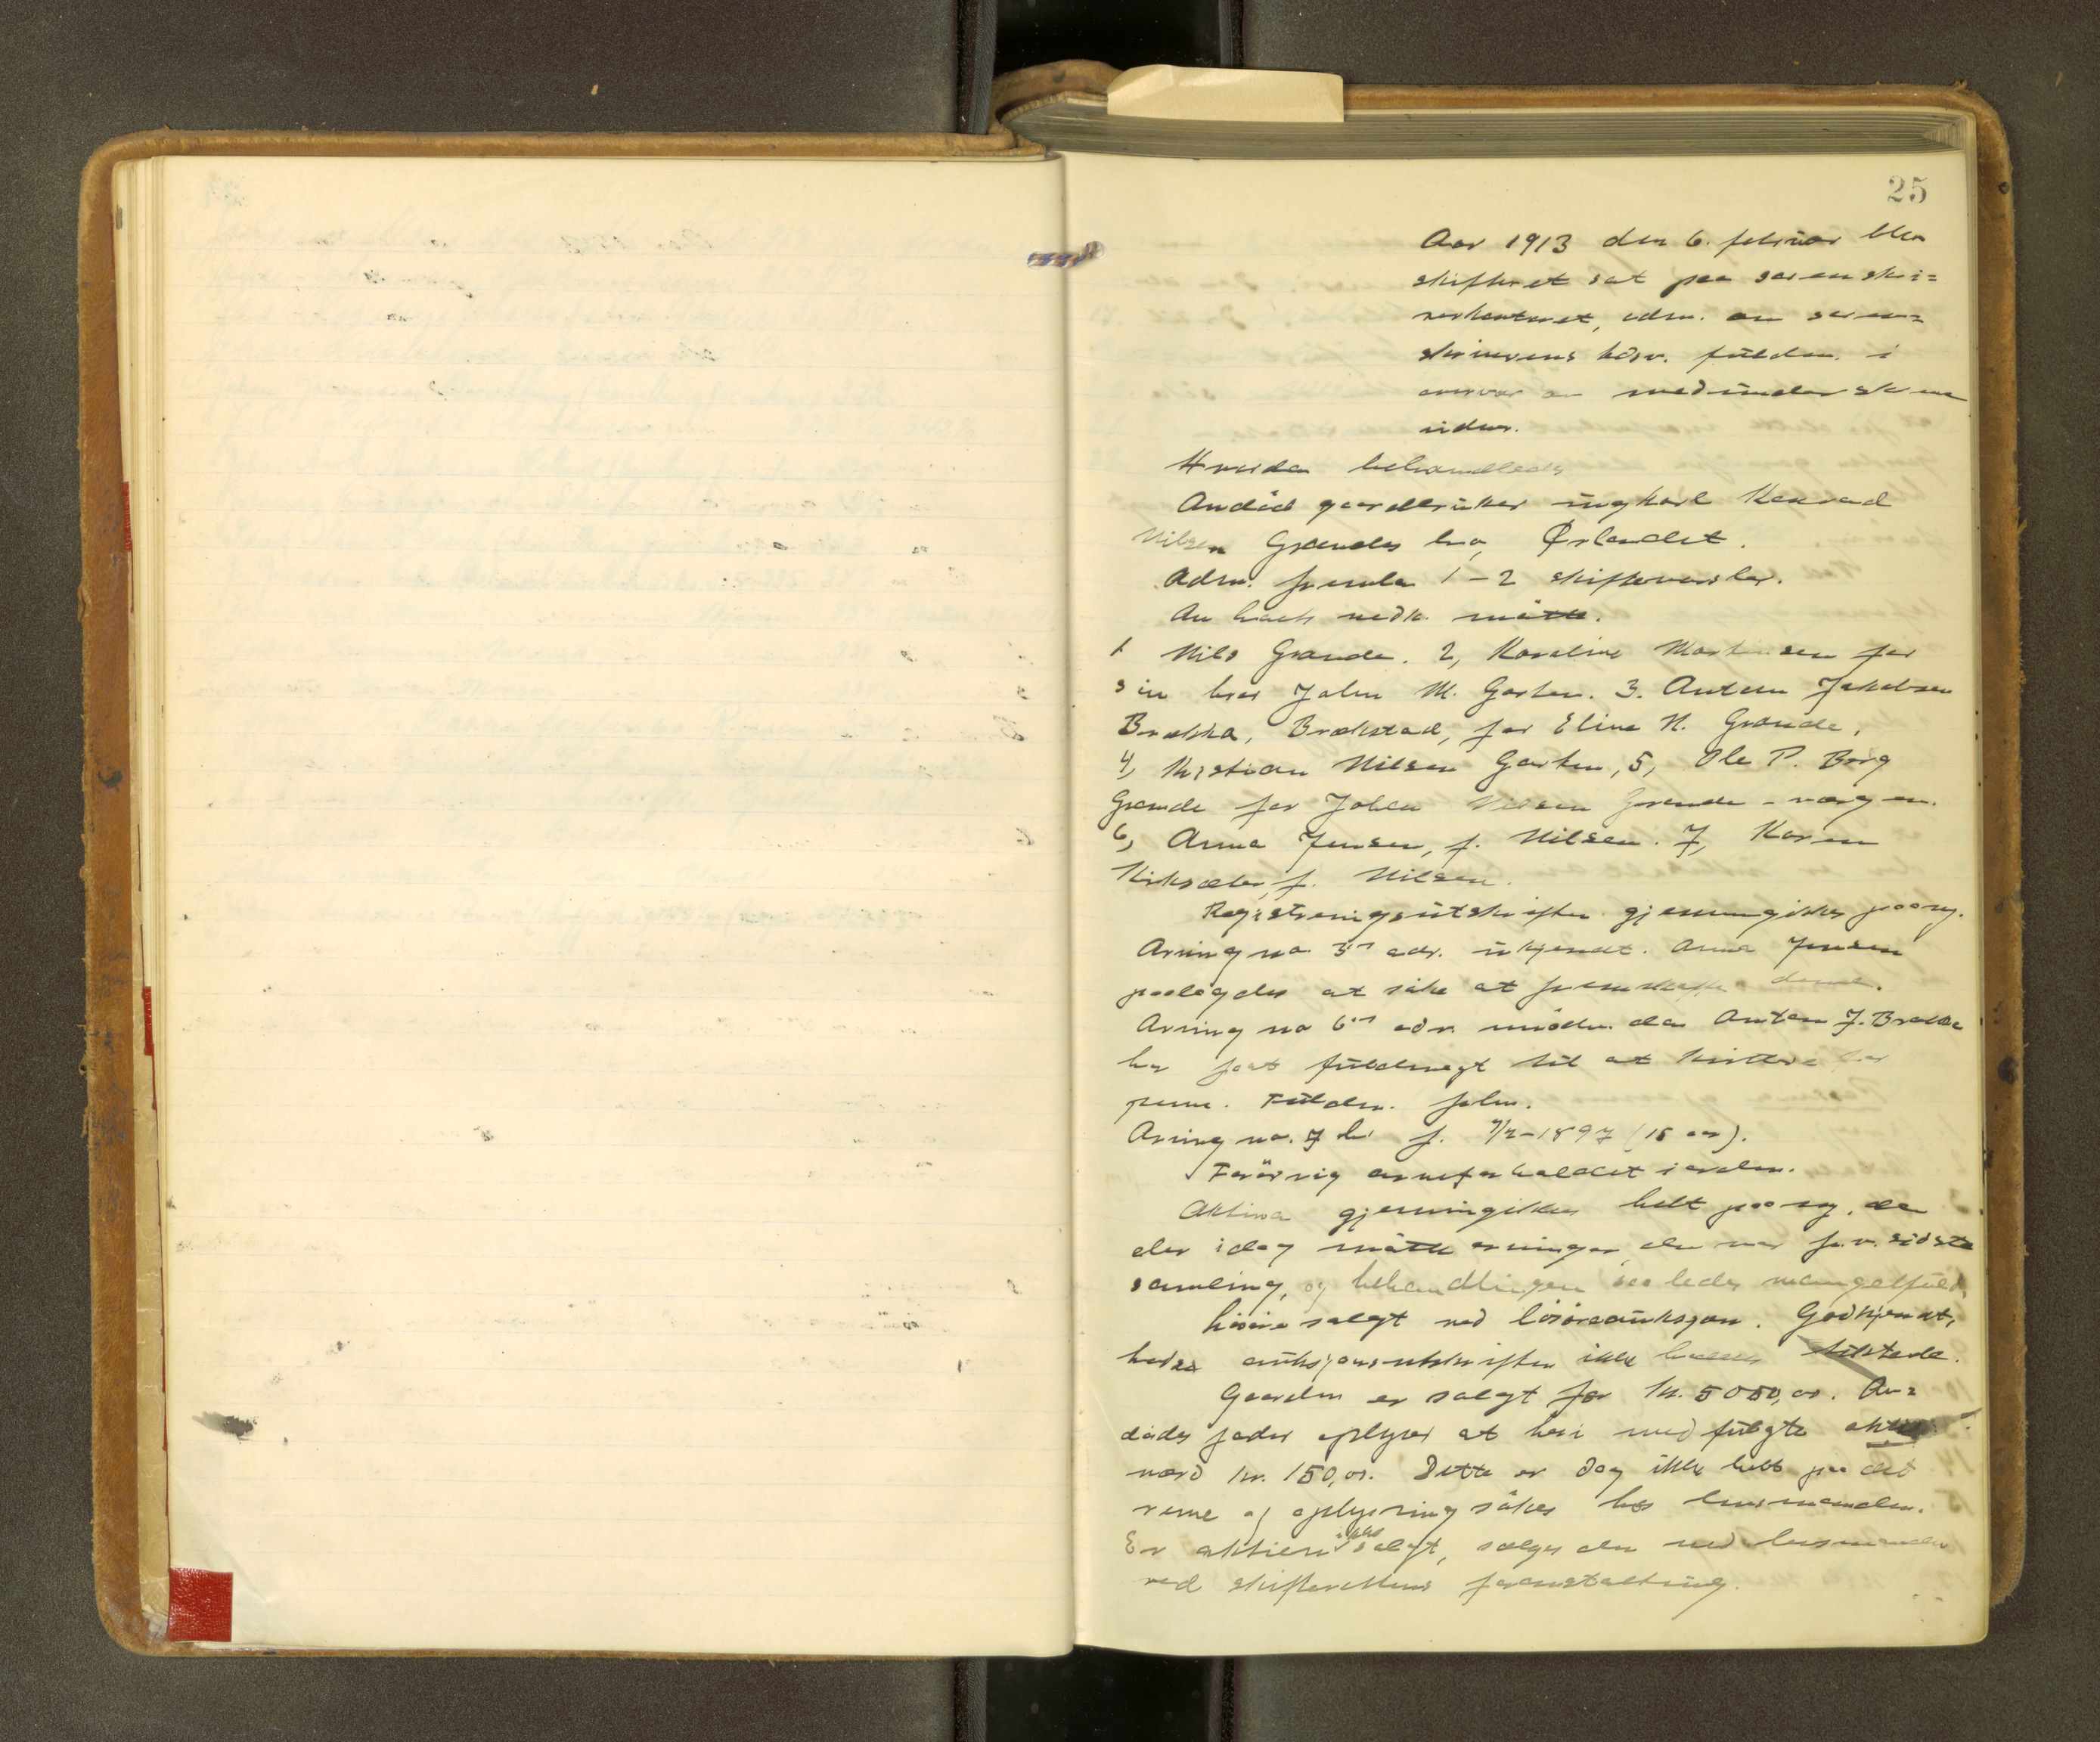 25
Aar 1913 den 6. februar blev
skifteret sat paa sorenskri=
verkontoret, adm. av soren=
skriverens kst. fuldm. i
overvær av medunderskrevne
vidner.
Hvorda behandledes
Avdöd gaardbruker ungkarl Konrad
Nilsen Grandes bo, Ørlandet.
Adm. fremla 1-2 skiftevarsler.
Av boets vedk. mötte.
1 Nils Grande. 2, Karoline Martinsen for
sin bror John M. Garten. 3. Anton Jakobsen
Brekka, Brekstad, for Eline N. Grande,
4, Kristian Nilsen Garten, 5, Ole P. Borg
Grande for Johan Nilsen Grande - værgen.
6, Anna Jensen, f. Nilsen. 7, Karen
Kirksæter, f. Nilsen.
Registreringsutskriften gjennemgikkes paany.
Arving no 3's adr. ukjendt. Anna Jensen
paalagdes at söke at fremskaffe denne.
Arving no 6's adr. nödv. da Anton J. Brekka
har faat fuldmagt til at kvittere for
penge. Fuldm. frlm.
Arving no. 7 er f. 7/2-1897 (15 aar).
Forövrig arveforholdet i orden.
Aktiva gjennemgikkes helt paany, da
der idag mötte arvinger, der var fr.v. sidste
samling, og behandlingen saaledes mangelfuld.
Lösöre solgt ved lösöreauksjon. Godkjendt,
hvis auksjonsutskriften ikke tilstede.
Gaarden er solgt for kr. 5050,00. Av=
dödes fader oplyser at heri medfulgte aktie
værd kr. 150,00. Dette er dog ikke helt paa det
rene og oplysning sökes hos lensmanden.
Er aktien ikke solgt, sælges den ved lensmanden
ved skifterettens foranstaltning.